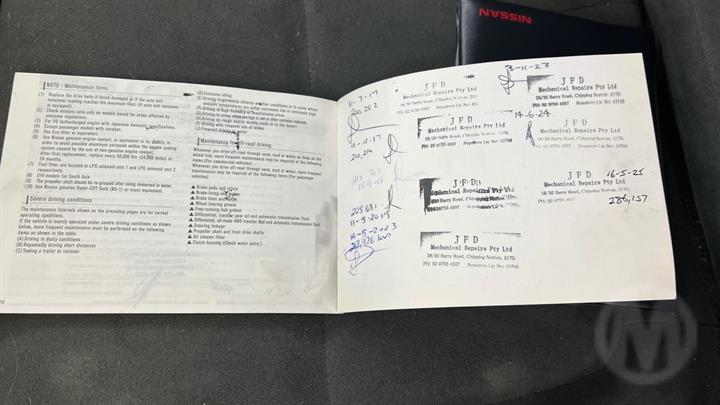 NISSAN
NOTE : Maintenance items
(1) Replace the drive belts if found damaged or if the auto belt
tensioner reading reaches the maximum limit. (If auto belt tensioner
is equipped)
(2) Check mixture ratio only on models based for areas affected by
emission regulations.
(3) For VQ turbocharged engine with Japanese domestic specifications.
(4) Except passenger models with catalyst.
(5) Use
(6) Use Nissan genuine engine coolant, or equivalent in its quality, in
order to avoid possible aluminum corrosion within the engine cooling
system caused by the use of non-genuine engine coolant.
After first replacement, replace every 40,000 km (24,000 miles) or
24 months.
(7) Fuel filter are located in LPG solenoid unit 1 and LPG solenoid unit 2
respectively.
(8) models for South Asia
(9) The propeller shaft should be re-greased after being immersed in water.
(10) Use Nissan genuine Hyper-CVT fluid (NS-1) or exact equivalent.
Severe driving conditions
The maintenance intervals shown on the preceding pages are for normal
operating conditions.
If the vehicle is mainly operated under severe driving conditions as shown
below, more frequent maintenance must be performed on the following
items as shown in the table.
(A) Driving in dusty conditions
(B) Repeatedly driving short distances
(C) Towing a trailer or caravan
(D) Extensive idling
(E) Driving in extremely adverse weather conditions or in areas where
ambient temperatures are either extremely low or extremely high
(F) Driving in high humidity or mountainous areas
(G) Driving in areas which are high in salt or other corrosive materials
(H) Driving on rough and/or muddy roads or in the desert
(I) Driving with frequent use of brakes
(J) Frequent driving in water
Maintenance for off-road driving
Whenever you drive off-road through sand, mud or water as deep as the
wheel hub, more frequent maintenance may be required of the following
items:(For commercial vehicles)
Whenever you drive off-road through sand, mud or water, more frequent
maintenance may be required of the following items (For passenger
vehicles)
▲ Brake pads and rotors
▲ Brake lining and drums
▲ Brake lines and hoses
▲ Wheel bearing grease
▲ Free-running hub grease
▲ Differential, transfer gear oil and automatic transmission fluid
▲ Differential, all-mode 4WD transfer fluid and automatic transmission fluid
▲ Steering linkage
▲ Propeller shaft and front drive shafts
▲ Air cleaner filter
▲ Clutch housing (Check water entry.)
11-3-17
J F D
Mechanical Repairs Pty Ltd
18/30 Barry Road, Chipping Norton,
PH: 02 9755 4557 Repairers Lic No:
11-11-17
210,214
J F D
Mechanical Repairs Pty Ltd
18/30 Barry Road, Chipping Norton, 2170.
PH: 02 9755 4557
225681
11-5-2019
11-5-2023
J F D
Mechanical Repairs Pty Ltd
J F D
Mechanical Repairs Pty Ltd
18/30 Barry Road, Chipping Norton, 2170.
PH: 02 9755 4557 Repairers Lic No: 53768
3-11-23
J F D
Mechanical Repairs Pty Ltd
18/30 Barry Road, Chipping Norton, 2170.
PH: 02 9755 4557 Repairers Lic No: 53768
14-6-24
J F D
Mechanical Repairs Pty Ltd
18/30 Barry Road, Chipping Norton, 2170.
PH: 02 9755 4557 Repairers Lic No: 53768
J F D 16-5-25
Mechanical Repairs Pty Ltd
18/30 Barry Road, Chipping Norton, 2170.
PH: 02 9755 4557 Repairers Lic No: 53768
286,157
M